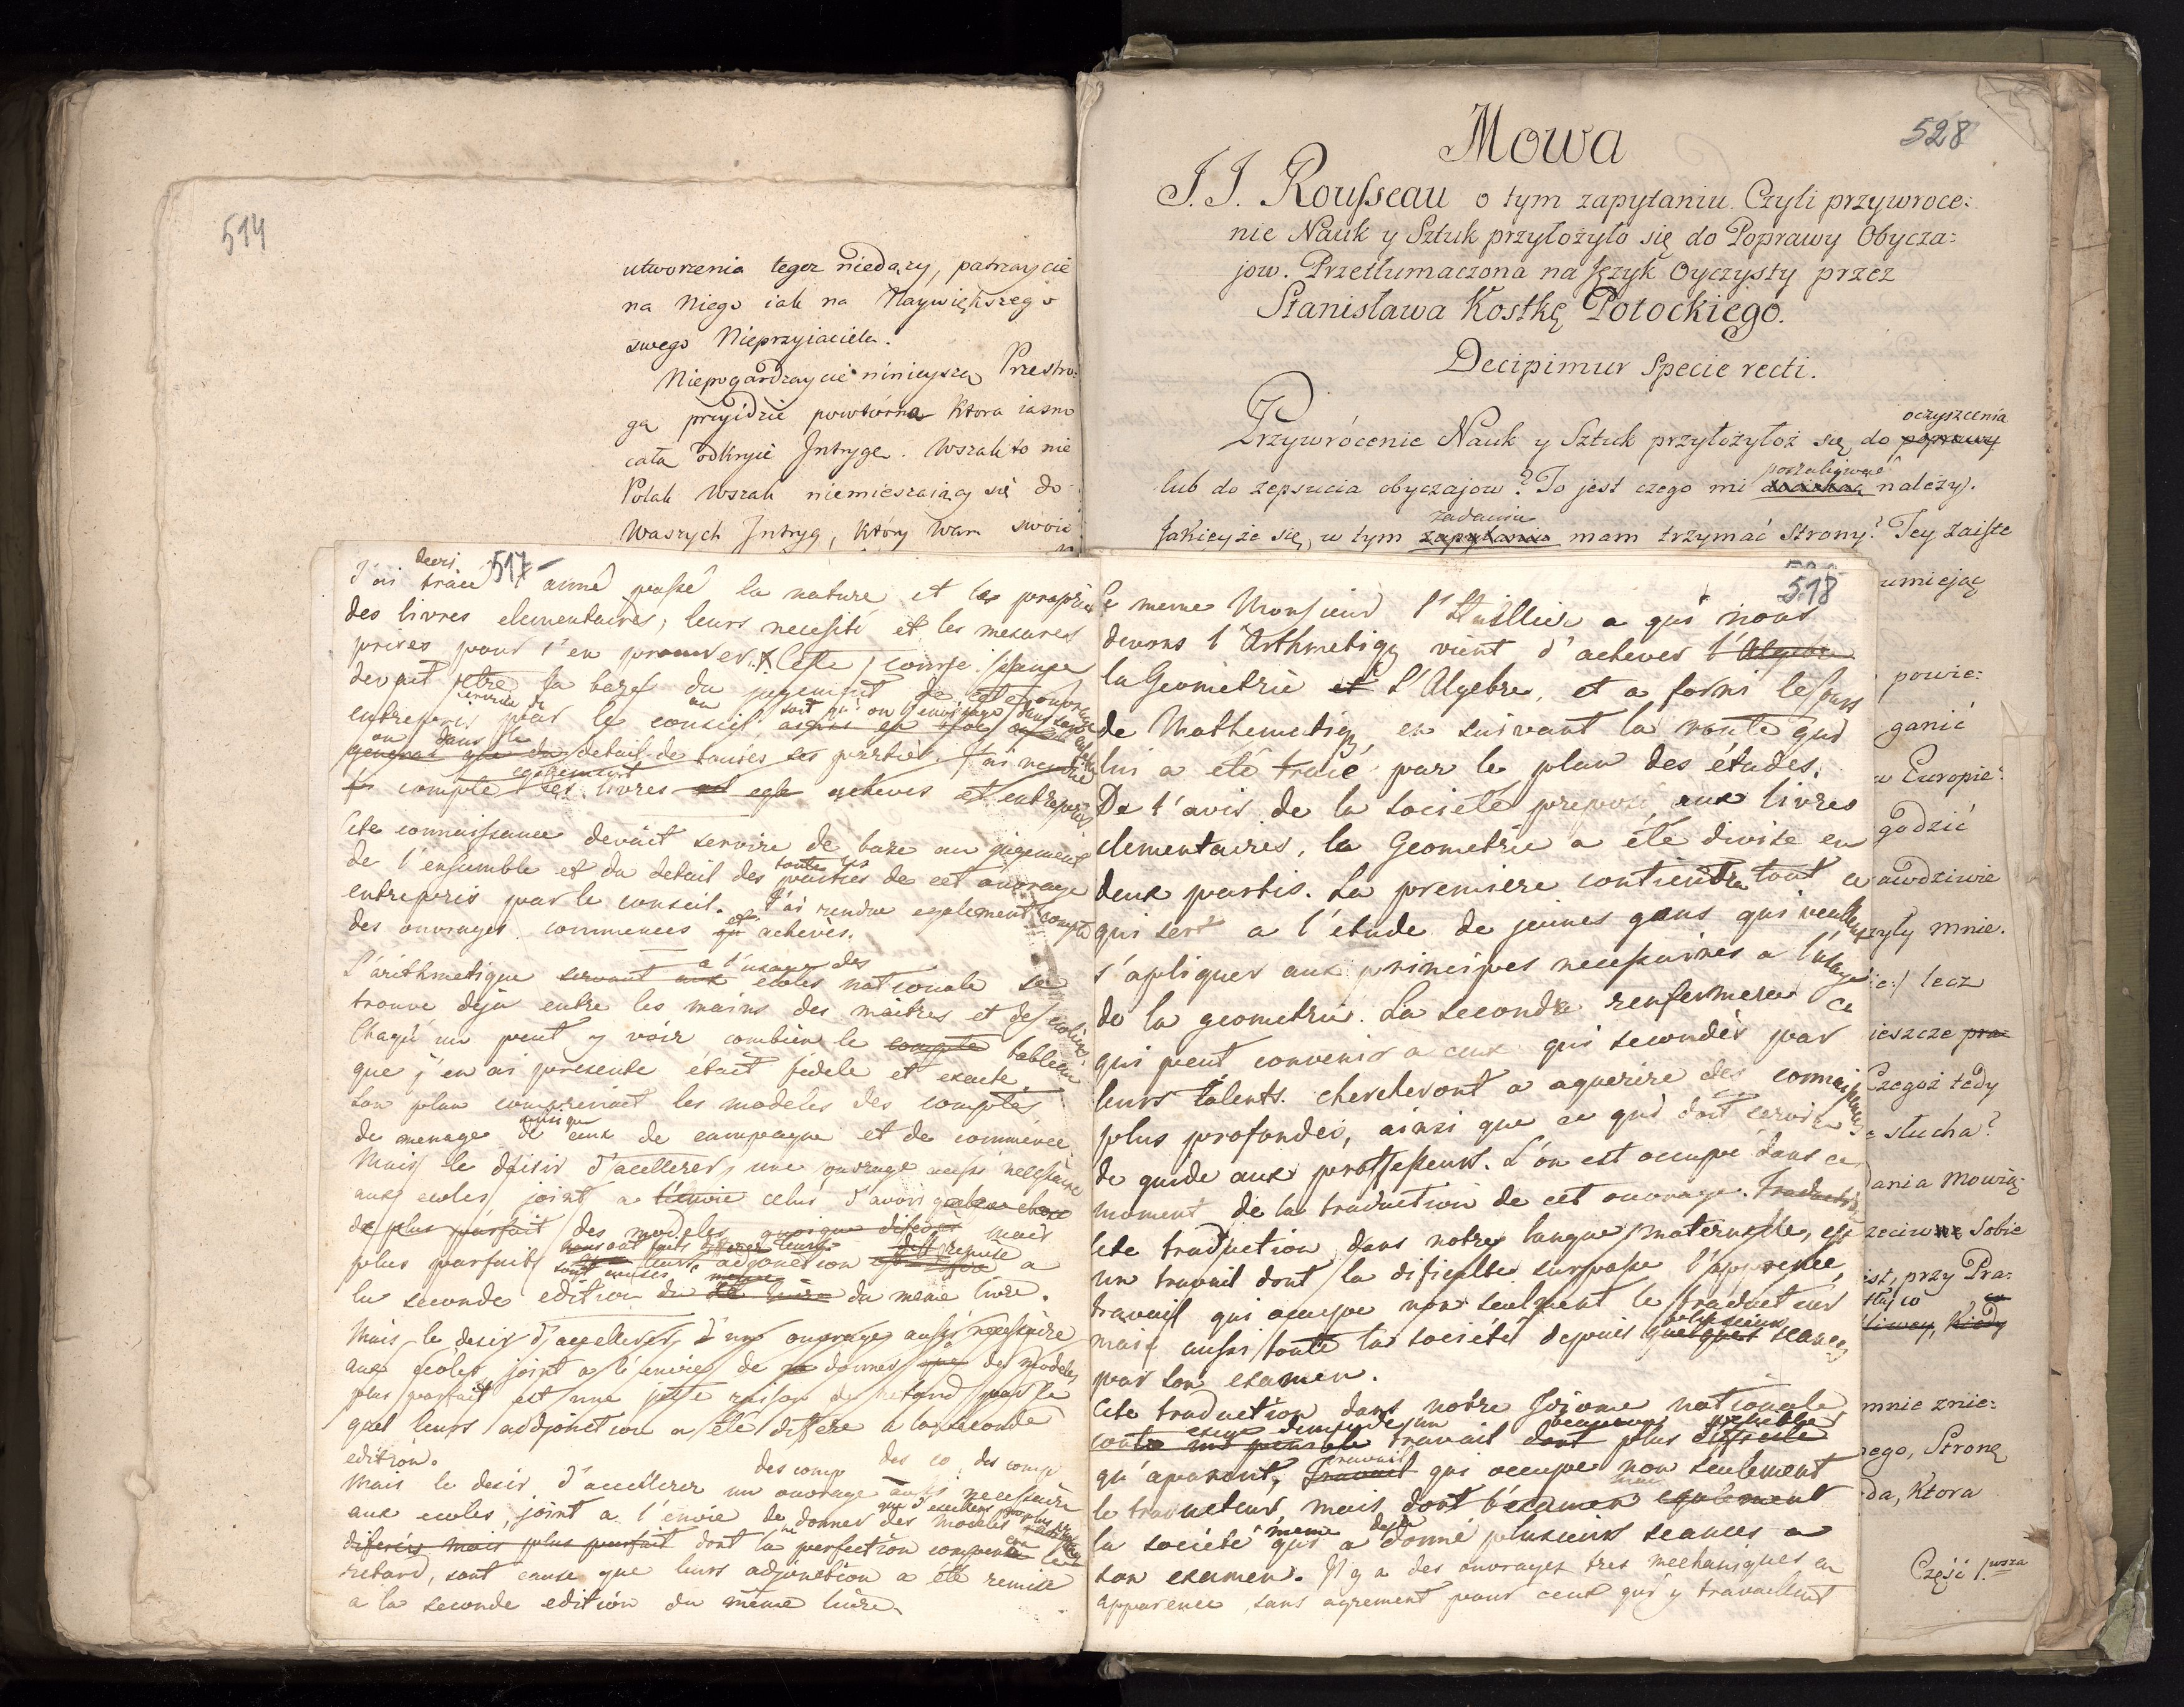 514
utworzenia tegoż niedąży, patrzaycie
na Niego iak na Naywiększego
swego Nieprzyiaciela.
Niepogardzaycie ninieyszą Przestro:
gą przyidzie powtórna Ktora iasno
całą odkryie Intrygę. Wszak to nie
Polak Wszak niemieszaiący się do
Waszych Intryg, Który Wam swoie
528
Mowa
J. J. Rousseau o tym zapytaniu. Czyli przywroce:
nie Nauk y Sztuk przyłożyło się do Poprawy Obycza:
jow. Przetłumaczona na Język Oyczysty przez
Stanisława Kostkę Potockiego.
Decipimur Specie recti.
oczyszcenia
Przywrócenie Nauk y Sztuk przyłożyłoż się do poprawy
lub do zepsucia obyczajow? To jest czego mi należy.
zadaniu
Jakieyże się, w tym zapytaniu mam trzymać Strony? Tey zaiste
umiejąc
powie:
ganić
w Europie
godzić
awdziwie
zyły mnie.
lecz
ieszcze pra
Czegoż tedy
słucha?
dania Mowię
Sobie
ist, przy Pra:
Kiedy
mnie znie:
ego, Stronę
da, Ktora
Część 1.wsza
517
decri
J'ai tracé l'anné passé la nature et les proprie
des livres elementaires; leurs necesité et les mesures
prises pour s'en procurer. Cette
devait etre la base du jugement de cet ouvrage
entrepris par le conseil
ou dans le
general que du detail de toutes ses parties. J'ai rendu
egalement
compte des livres acheves et entrepris
Cete connaissance devait servire de base au jugement
toutes les
de l'ensemble et du detail des parties de cet ouvrage
entrepris par le conseil. J'ai rendue egalement compte
des ouvrages commencés et achevés.
a l'usage des
L'arithmetique servant aux ecoles nationale se
trouve deja entre les mains des maitres et des ecoliers.
Chaqu'un peut y voir combien le compte tableau
que j'en ai presenté était fidele et exacte.
Son plan comprenait les modeles des comptes
ainsi que
de menage de ceux de campagne et de commerce.
Mais le désir d'acellerer une ouvrage aussi necessaire
aux ecoles joint a l'envie celui d'avoir quelque chose
de plus parfait des modeles quoique diferés mais
plus parfaits leurs adjonction remise a
la seconde edition du du meme livre.
Mais le desir d'accellerer d'un ouvrage aussi necessaire
aux écoles joint a l'envie de donner de modeles
plus parfait est une juste raison de retard par le
quel leurs adjonction a été differe a la seconde
edition.
des comp des co des comp
Mais le desir d'accellerer un ouvrage aussi necessaire
aux ecoles, joint a l'envie de donner des modeles
diferés mais plus parfait dont la perfection compense le
retard, sont cause que leurs adjonction a été remise
a la seconde edition du même livre.
518
Le meme Monsieur l'Huillier a qui nous
devons l'Arthmetiq vient d'achever l'Algebre
la Geometrie et l'Algebre, et a forni le cours
de Mathematiq, en suivant la route qui
lui a été tracé par le plan des études.
De l'avis de la société preposé aux livres
elementaires, la Geometrie a été divisé en
deux partis. La premiere contiendra tout ce
qui sert a l'étude de jeunes gens qui veullent
s'apliquer aux principes necessaires a l'usage
de la geometrie. La seconde renfermera ce
qui peut convenir a ceux qui secondés par
leurs talents chercheront a aquerire des connaissances
plus profondes, ainsi que ce qui doit servir
de guide aux professeurs. L'on est occupé dans ce
moment de la traduction de cet ouvrage. Traduction
Cete traduction dans notre langue maternelle, est
un travail dont la dificulté surpasse l'apparence,
travail qui occupe non seulment le traducteur
plusieurs
mais aussi toute la société depuis quelques seances
par son examen.
Cete traduction dans notre Idiome nationale
exige demande un
coute travail dont plus difficile
qu'aparent, travail qui occupe non seulement
le traducteur mais dont l'examen egalement
meme deja
la société qui a donné plusieurs seances a
son examen. Il y a des ouvrages tres mechaniques en
apparence, sans agrement pour ceux qui y travaillent